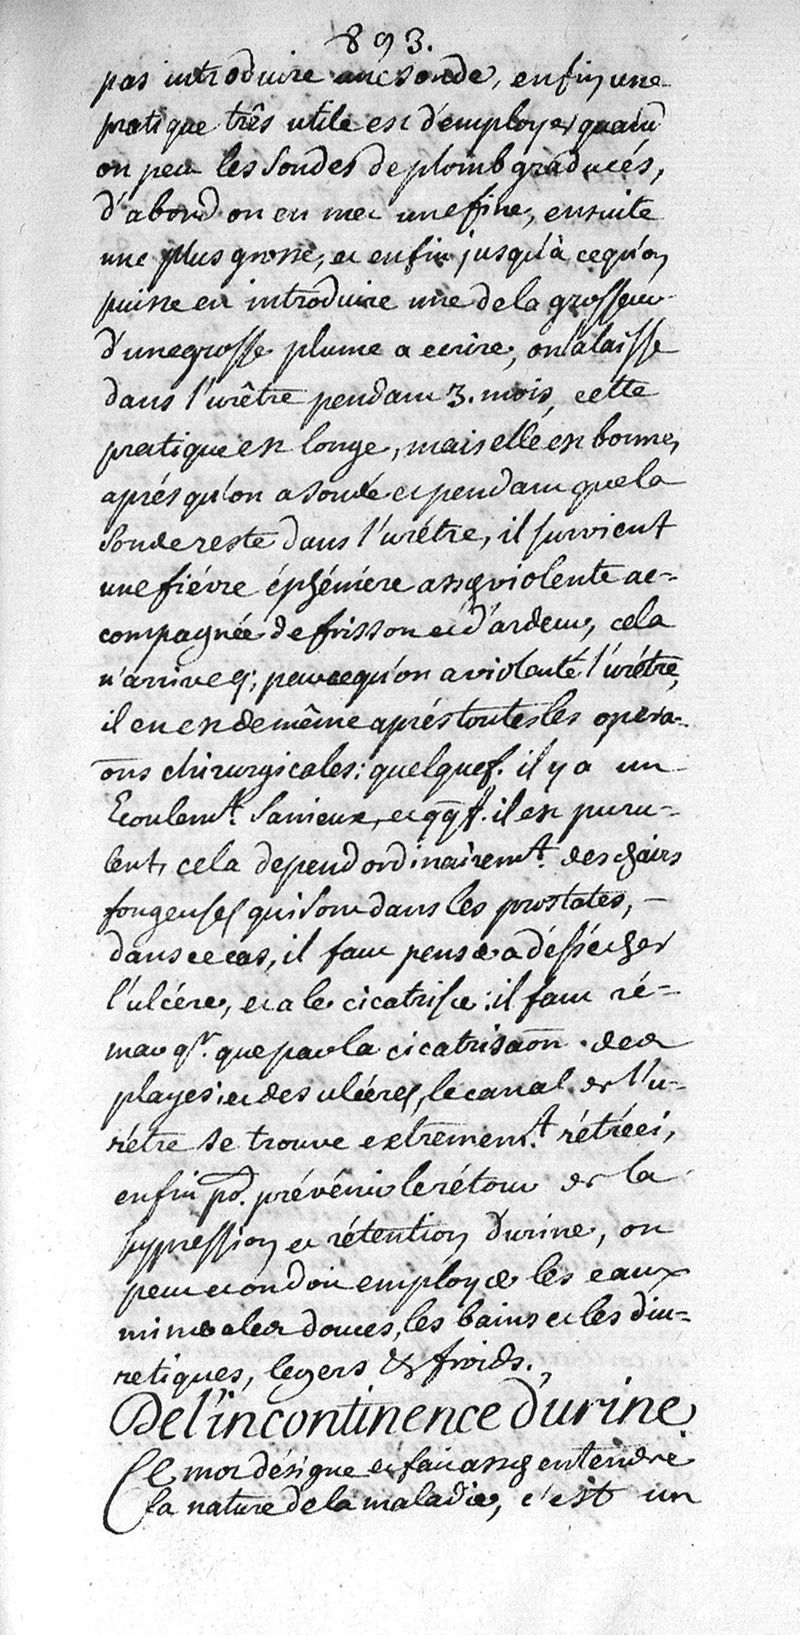 893.
pas introduire une sonde, enfin une
pratique três utile est d'employer quand
on peut les sondes de plomb graduées,
d'abord on en met une fine, ensuite
une plus grosse, et enfin jusqu'à ce qu'on
puisse en introduire une de la grosseur
d'une grosse plume a ecrire, on la laisse
dans l'urêtre pendant 3. mois, cette
pratique est longe, mais elle est bonne,
aprés qu'on a sondé et pendant que la
sonde reste dans l'urétre, il survient
une fiévre éphémere assez violente ac=
compagnée de frisson et d'ardeur, cela
n'arrive q; parcequ'on a violenté l'urétre,
il en est de même aprés toutes les opera-
ons chirurgicales: quelquef. il y a un
Ecoulemt. Sanieux, et qqf. il est puru=
lent, cela depend ordinairemt. des chairs
fongeuses qui sont dans les prostates, –
dans ce cas, il faut penser a déssécher
l'ulcére, et a le cicatriser: il faut ré=
marqr. que par la cicatrisaon. des
playes et des ulcéres, le canal de l'u-
rétre se trouve extrement. rétréci,
enfin pr. prévénir le rétour de la
suppression et rétention d'urine, on
peut et on doit employer les eaux
minerales douces, les bains et les diu=
retiques, legers & froids.,
De l'incontinence d'urine
Ce mot désigne et fait assez entendre
la nature de la maladie, c'est un